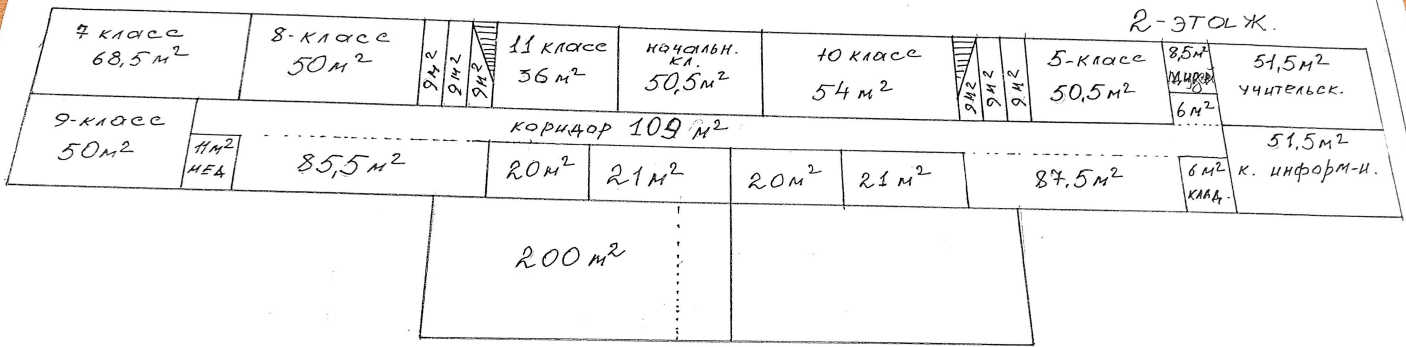 2-ЭТАЖ.
7 класс
68,5 м²
8-класс
50 м²
9 м²
9 м²
9 м²
11 класс
36 м²
начальн.
кл.
50,5 м²
10 класс
54 м²
9 м²
9 м²
9 м²
5-класс
50,5 м²
8,5 м²
6 м²
51,5 м²
учительск.
9-класс
50 м²
11 м²
МЕД
коридор 109 м²
85,5 м²
20 м²
21 м²
20 м²
21 м²
87.5 м²
6 м²
КЛАД.
51,5 м²
к. информ-и.
200 м²